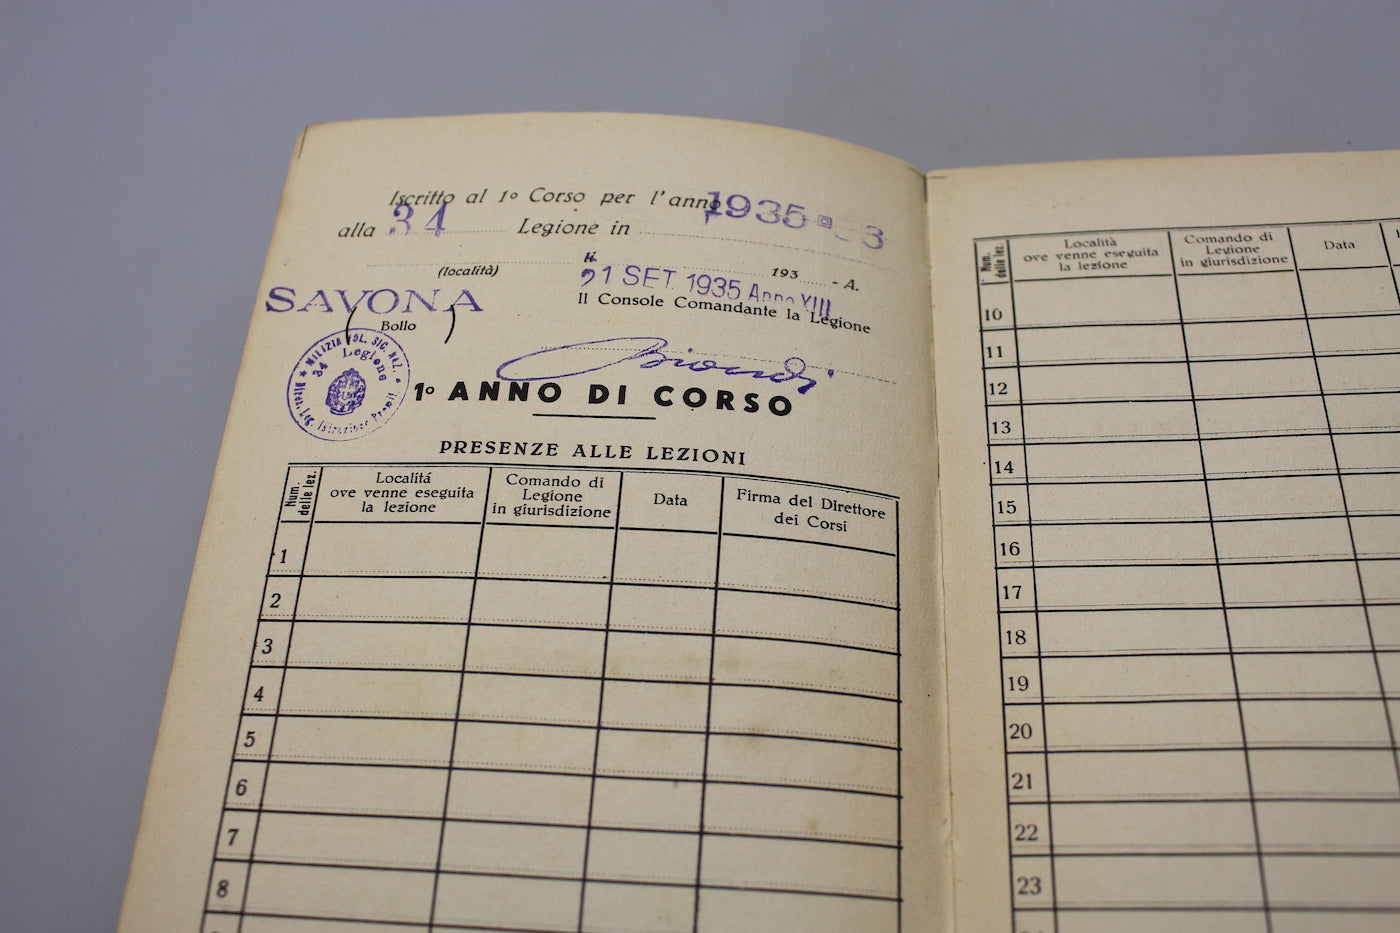 Iscritto al 1º Corso per l'anno 1935
alla 34 Legione in
(località) li 193 - A.
21 SET. 1935 Anno XIII
SAVONA
Il Console Comandante la Legione
( Bollo )
MILIZIA VOL. SIC. NAZ.
34 Legione
Istruzione Premil.
Biondi
1º ANNO DI CORSO
PRESENZE ALLE LEZIONI
Num. delle lez.
Localitá ove venne eseguita la lezione
Comando di Legione in giurisdizione
Data
Firma del Direttore dei Corsi
1
2
3
4
5
6
7
8
Num. delle lez.
Località ove venne eseguita la lezione
Comando di Legione in giurisdizione
Data
10
11
12
13
14
15
16
17
18
19
20
21
22
23